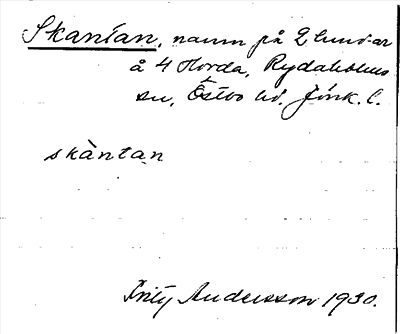 Skantan, namn på 2 lund-ar
å 4 Horda, Rydaholms
sn, Östbo hd. Jönk. l.
skàntan
Fritz Andersson 1930.